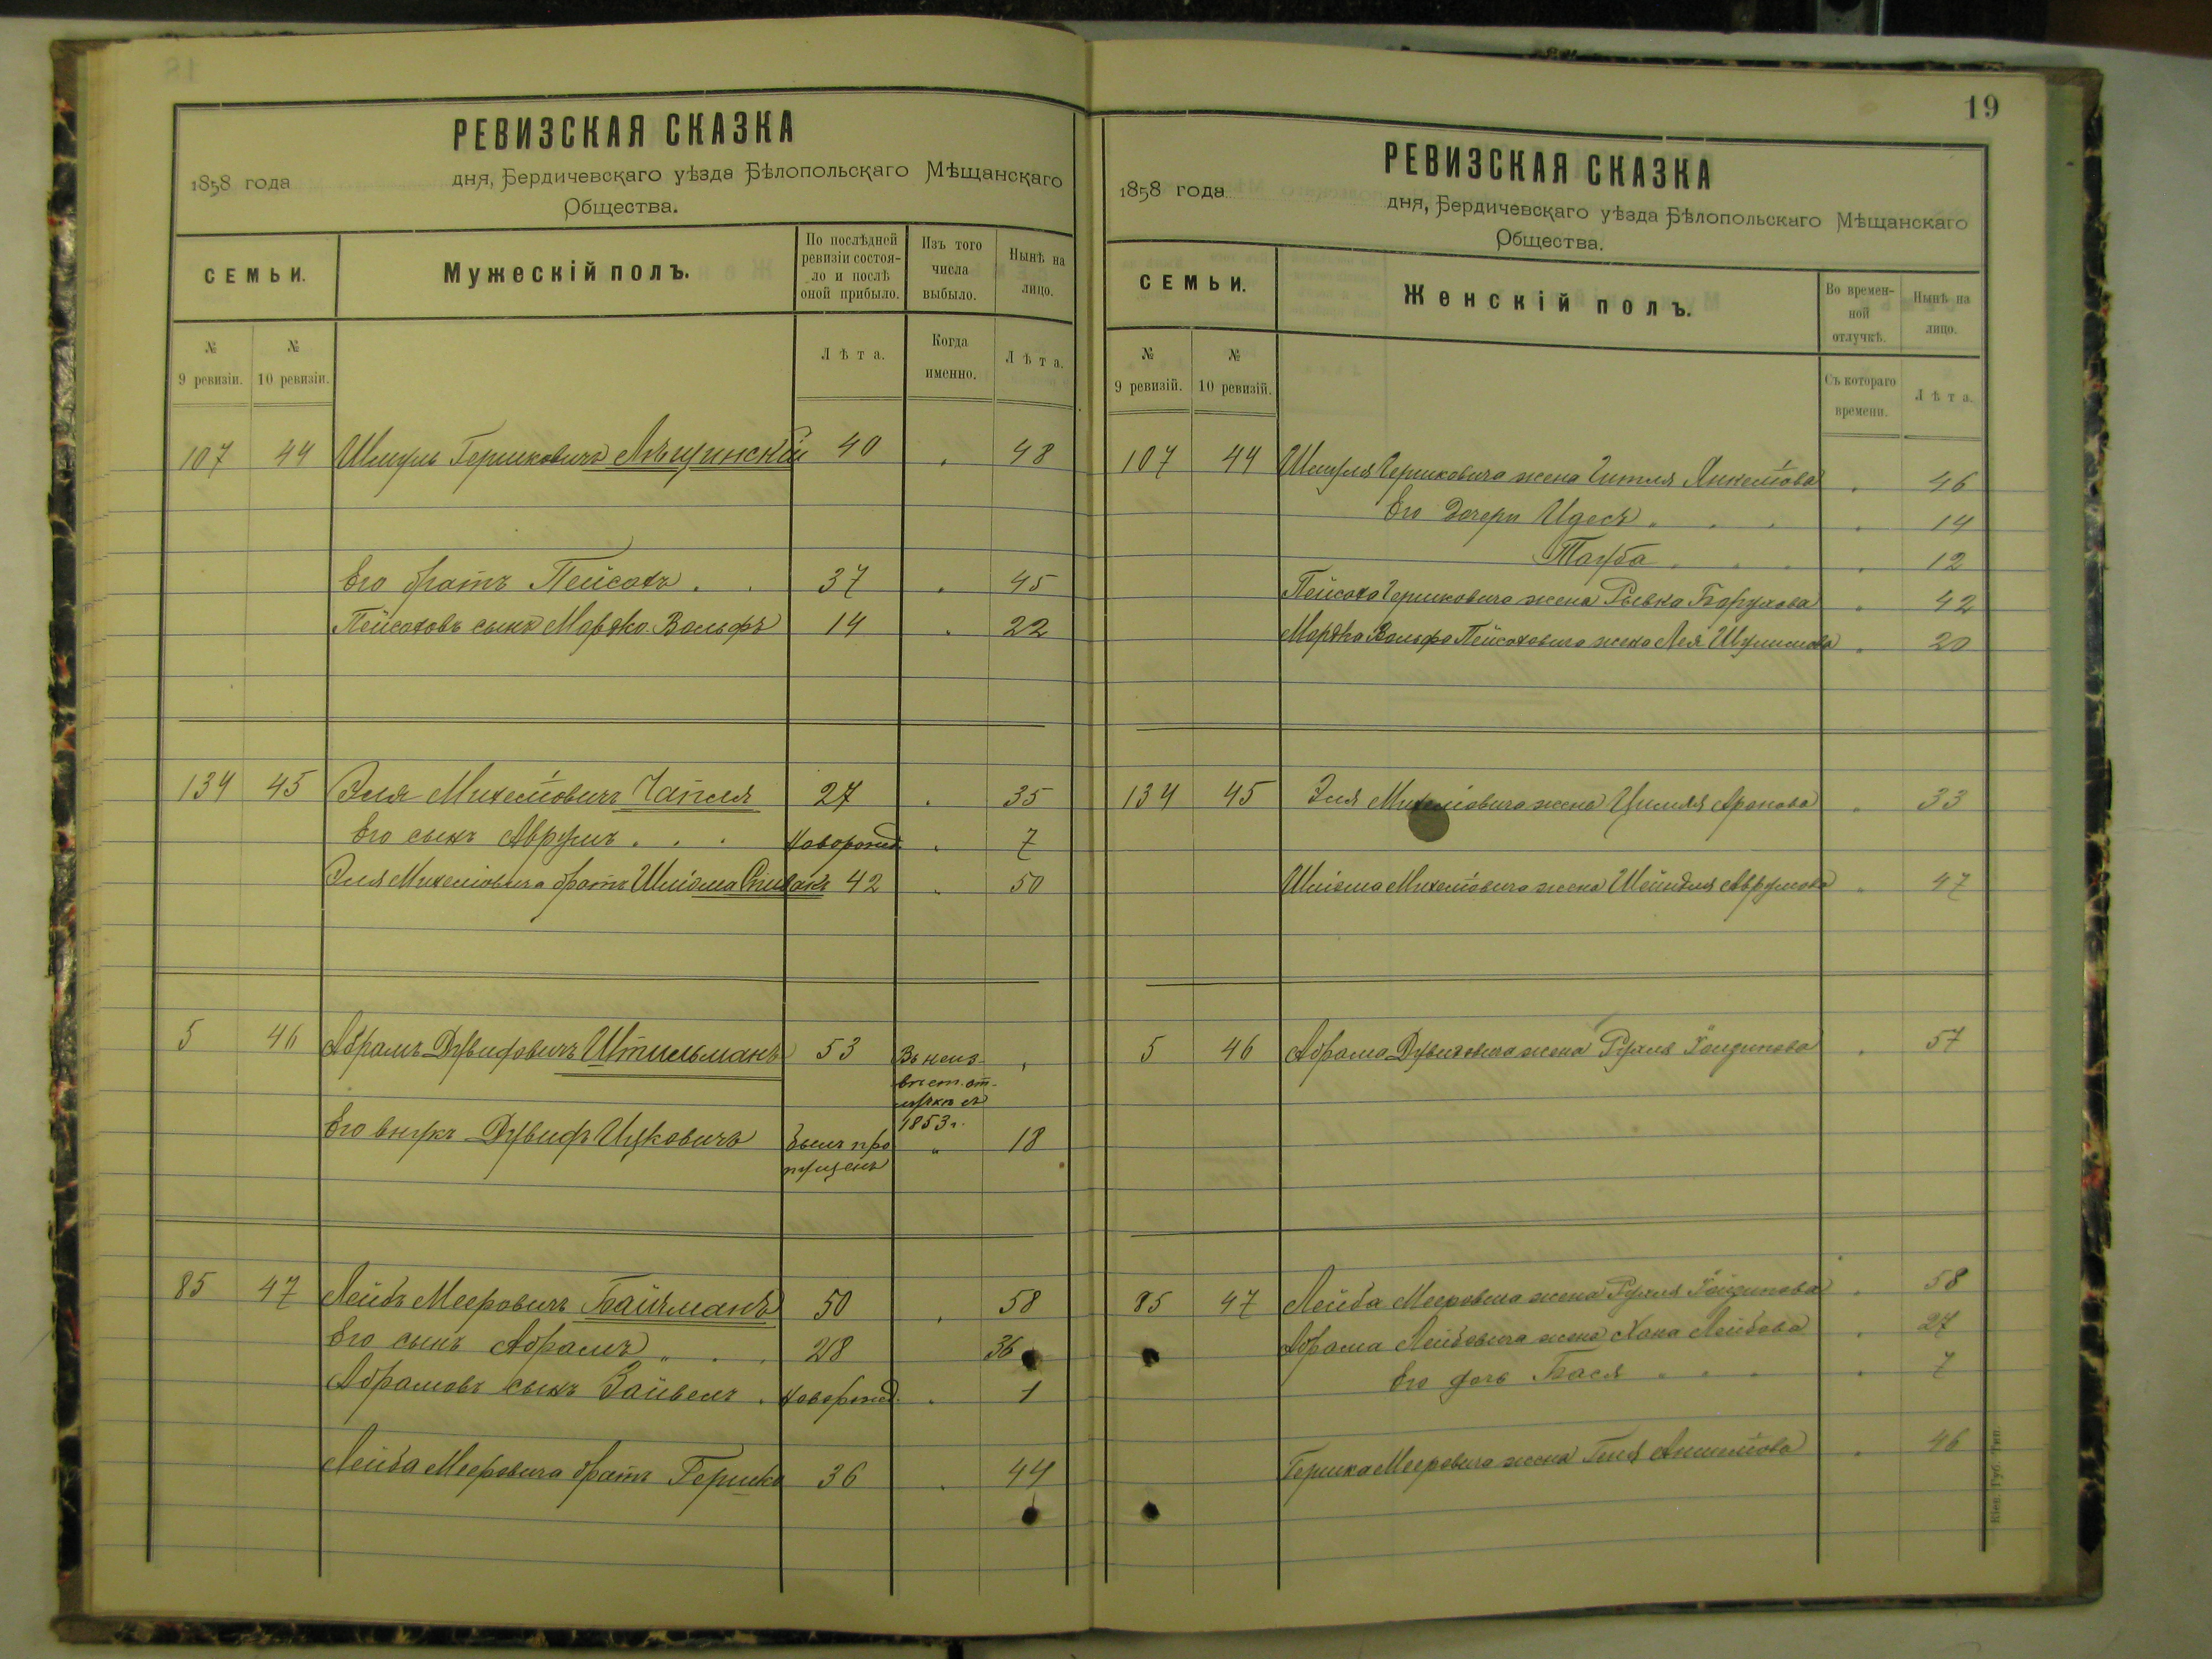 РЕВИЗСКАЯ СКАЗКА
1858 года дня, Бердичевскаго уѣзда Бѣлопольскаго Мѣщанскаго
Общества.
СЕМЬИ.
Мужескій полъ.
По послѣдней ревизіи состоя-
ло и послѣ оной прибыло.
Изъ того числа выбыло.
Нынѣ на лицо.
№ 9 ревизіи.
№ 10 ревизіи.
Лѣта.
Когда именно.
Лѣта.
107 44 Шмуль Гершковичъ Лѣщинскій 40 48
Его братъ Пейсахъ 37 45
Пейсаховъ сынъ Мордко Вольфъ 14 22
134 45 Эля Михелiовичъ Чапля 27 35
Его сынъ Аврумъ новорожд. 7
Эля Михелiовича братъ Шліома Спивакъ 42 50
5 46 Абрамъ Дувидовичъ Штильманъ 53 Въ неиз-
вѣст. от-
лучкѣ съ
1853 г.
Его внукъ Дувидъ Ицковичъ былъ про
пущенъ " 18
85 47 Лейбъ Мееровичъ Байчманъ 50 58
Его сынъ Абрамъ 28 36
Абрамовъ сынъ Зайвелъ новорожд. 1
Лейба Мееровича братъ Гершко 36 44
19
РЕВИЗСКАЯ СКАЗКА
1858 года дня, Бердичевскаго уѣзда Бѣлопольскаго Мѣщанскаго
Общества.
СЕМЬИ.
Женскій полъ.
Во времен-
ной отлучкѣ.
Нынѣ на лицо.
№ 9 ревизій.
№ 10 ревизій.
Съ котораго времени.
Лѣта.
107 44 Шмуля Гершковича жена Гитля Янкелiова 46
Его дочери Идесъ 14
Тауба 12
Пейсаха Гершковича жена Рывка Борухова 42
Мордка Вольфа Пейсаховича жена Лея Шулимова 20
134 45 Эля Михелiовича жена Цимля Аронова 33
Шліома Михелiовича жена Шейндля Аврумова 47
5 46 Абрама Дувидовича жена Рухля 57
85 47 Лейба Мееровича жена Рухля 58
Абрама Лейбовича жена Хана Лейбова 27
Его дочь Бася 7
Гершка Мееровича жена 46
Кіев. Губ. Тип.